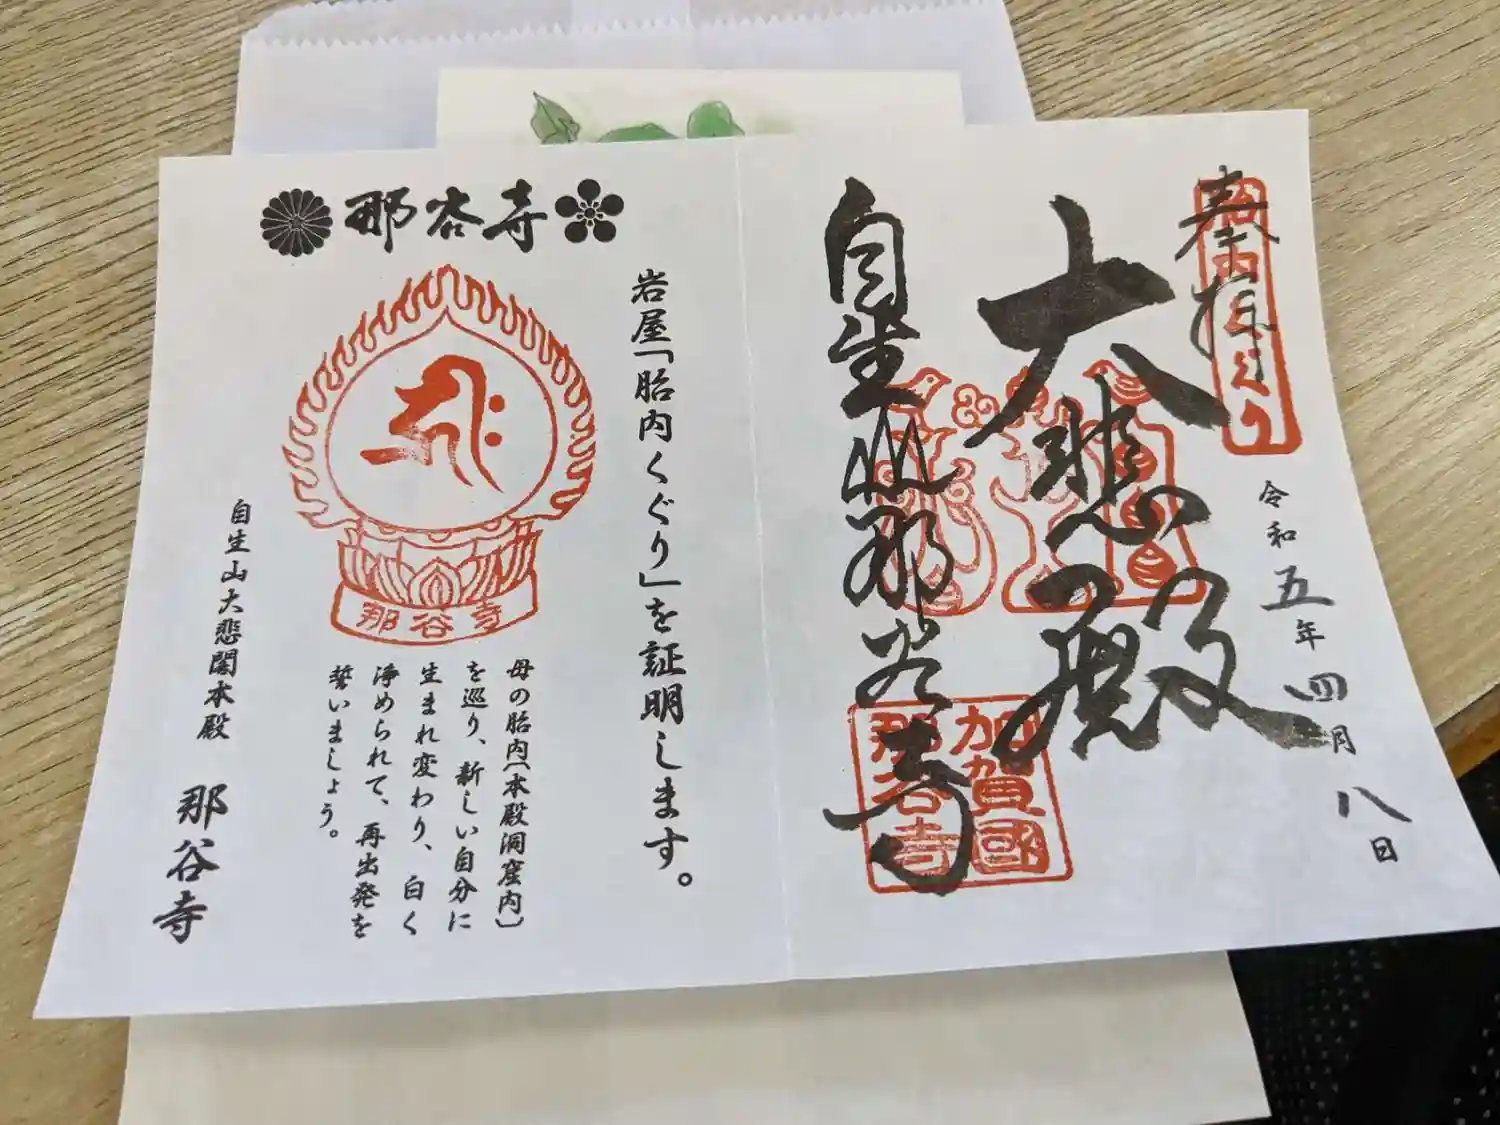 奉拝
胎内くぐり
大悲殿
自生山那谷寺
加賀國
那谷寺
令和五年四月八日
那谷寺
岩屋「胎内くぐり」を証明します。
那谷寺
母の胎内(本殿洞窟内)
を巡り、新しい自分に
生まれ変わり、白く
浄められて、再出発を
誓いましょう。
自生山大悲閣本殿
那谷寺